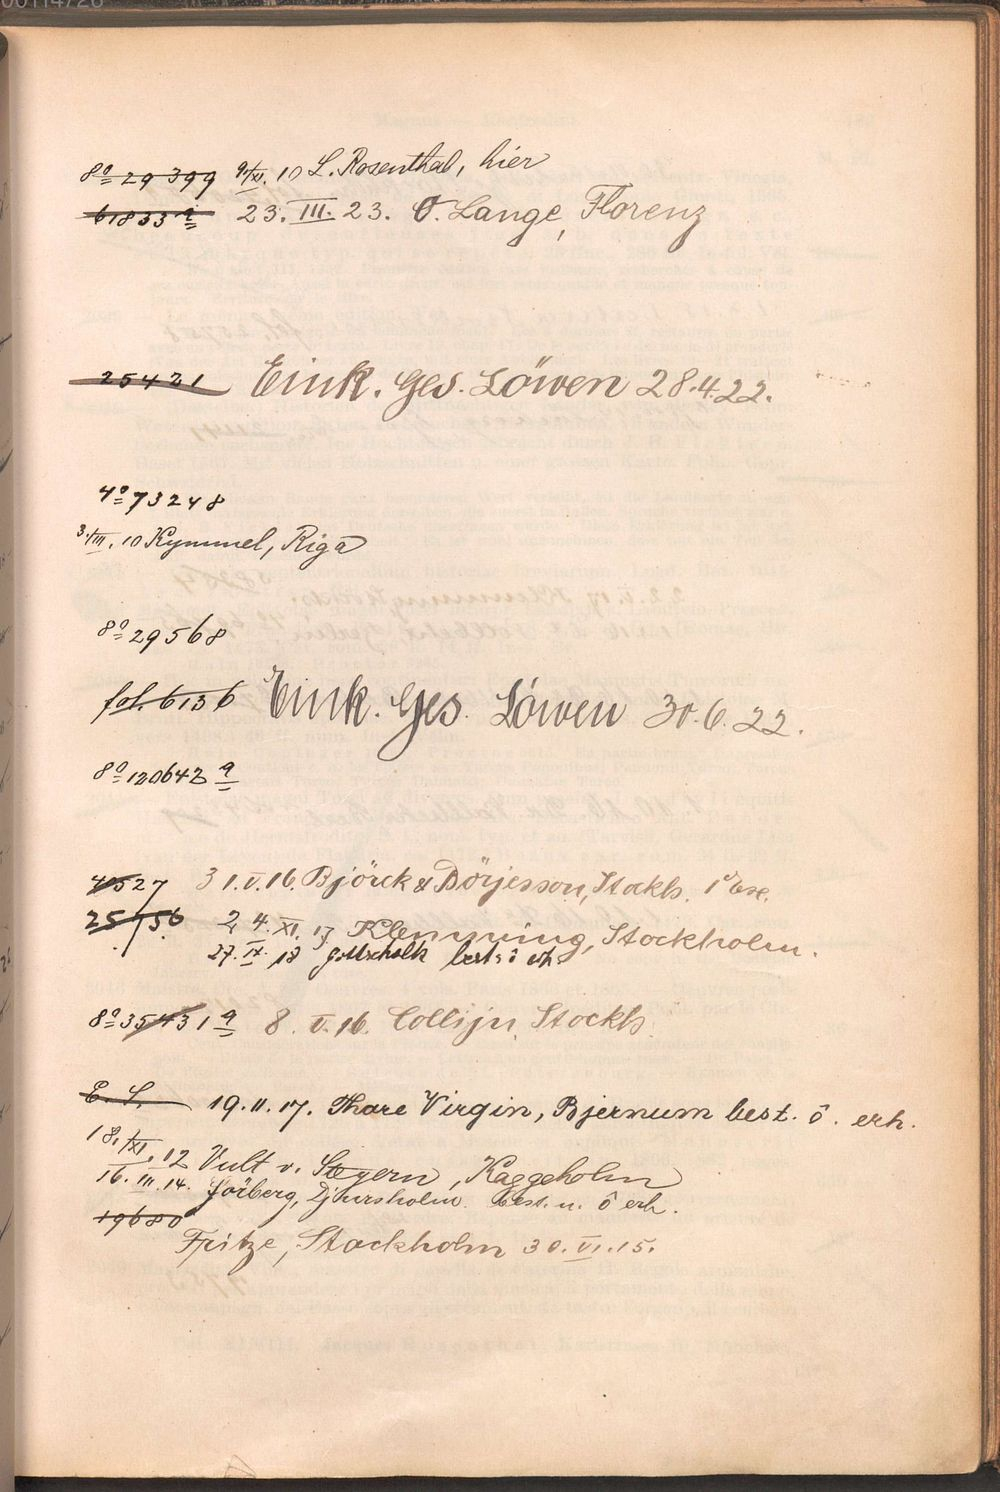 00114726
8º 29399 9/XI. 10 L. Rosenthal, hier
61833ª 23. III. 23. O. Lange, Florenz
25421 Eink. Ges. Löwen 28.4.22.
4º 73248
3./III. 10 Kymmel, Riga
8º 29568
fol. 6136 Eink. Ges. Löwen 30.6.22.
8º 120642ª
40527 31. V. 16. Björck & Börjesson, Stockh. 1 Ex.
25756 24. XI. 17 Klemming, Stockholm.
27. IX. 18 Gottschalk best. ô erh.
8º 35431ª 8. V. 16. Collijn, Stockh.
E. L. 19. 11. 17. Thore Virgin, Bjernum best. ô. erh.
18./XI. 12 Vult v. Steyern, Kaggeholm
16. III. 14. Djursholm. Best. u. ô erh.
19680
Fritze, Stockholm 30. VI. 15.